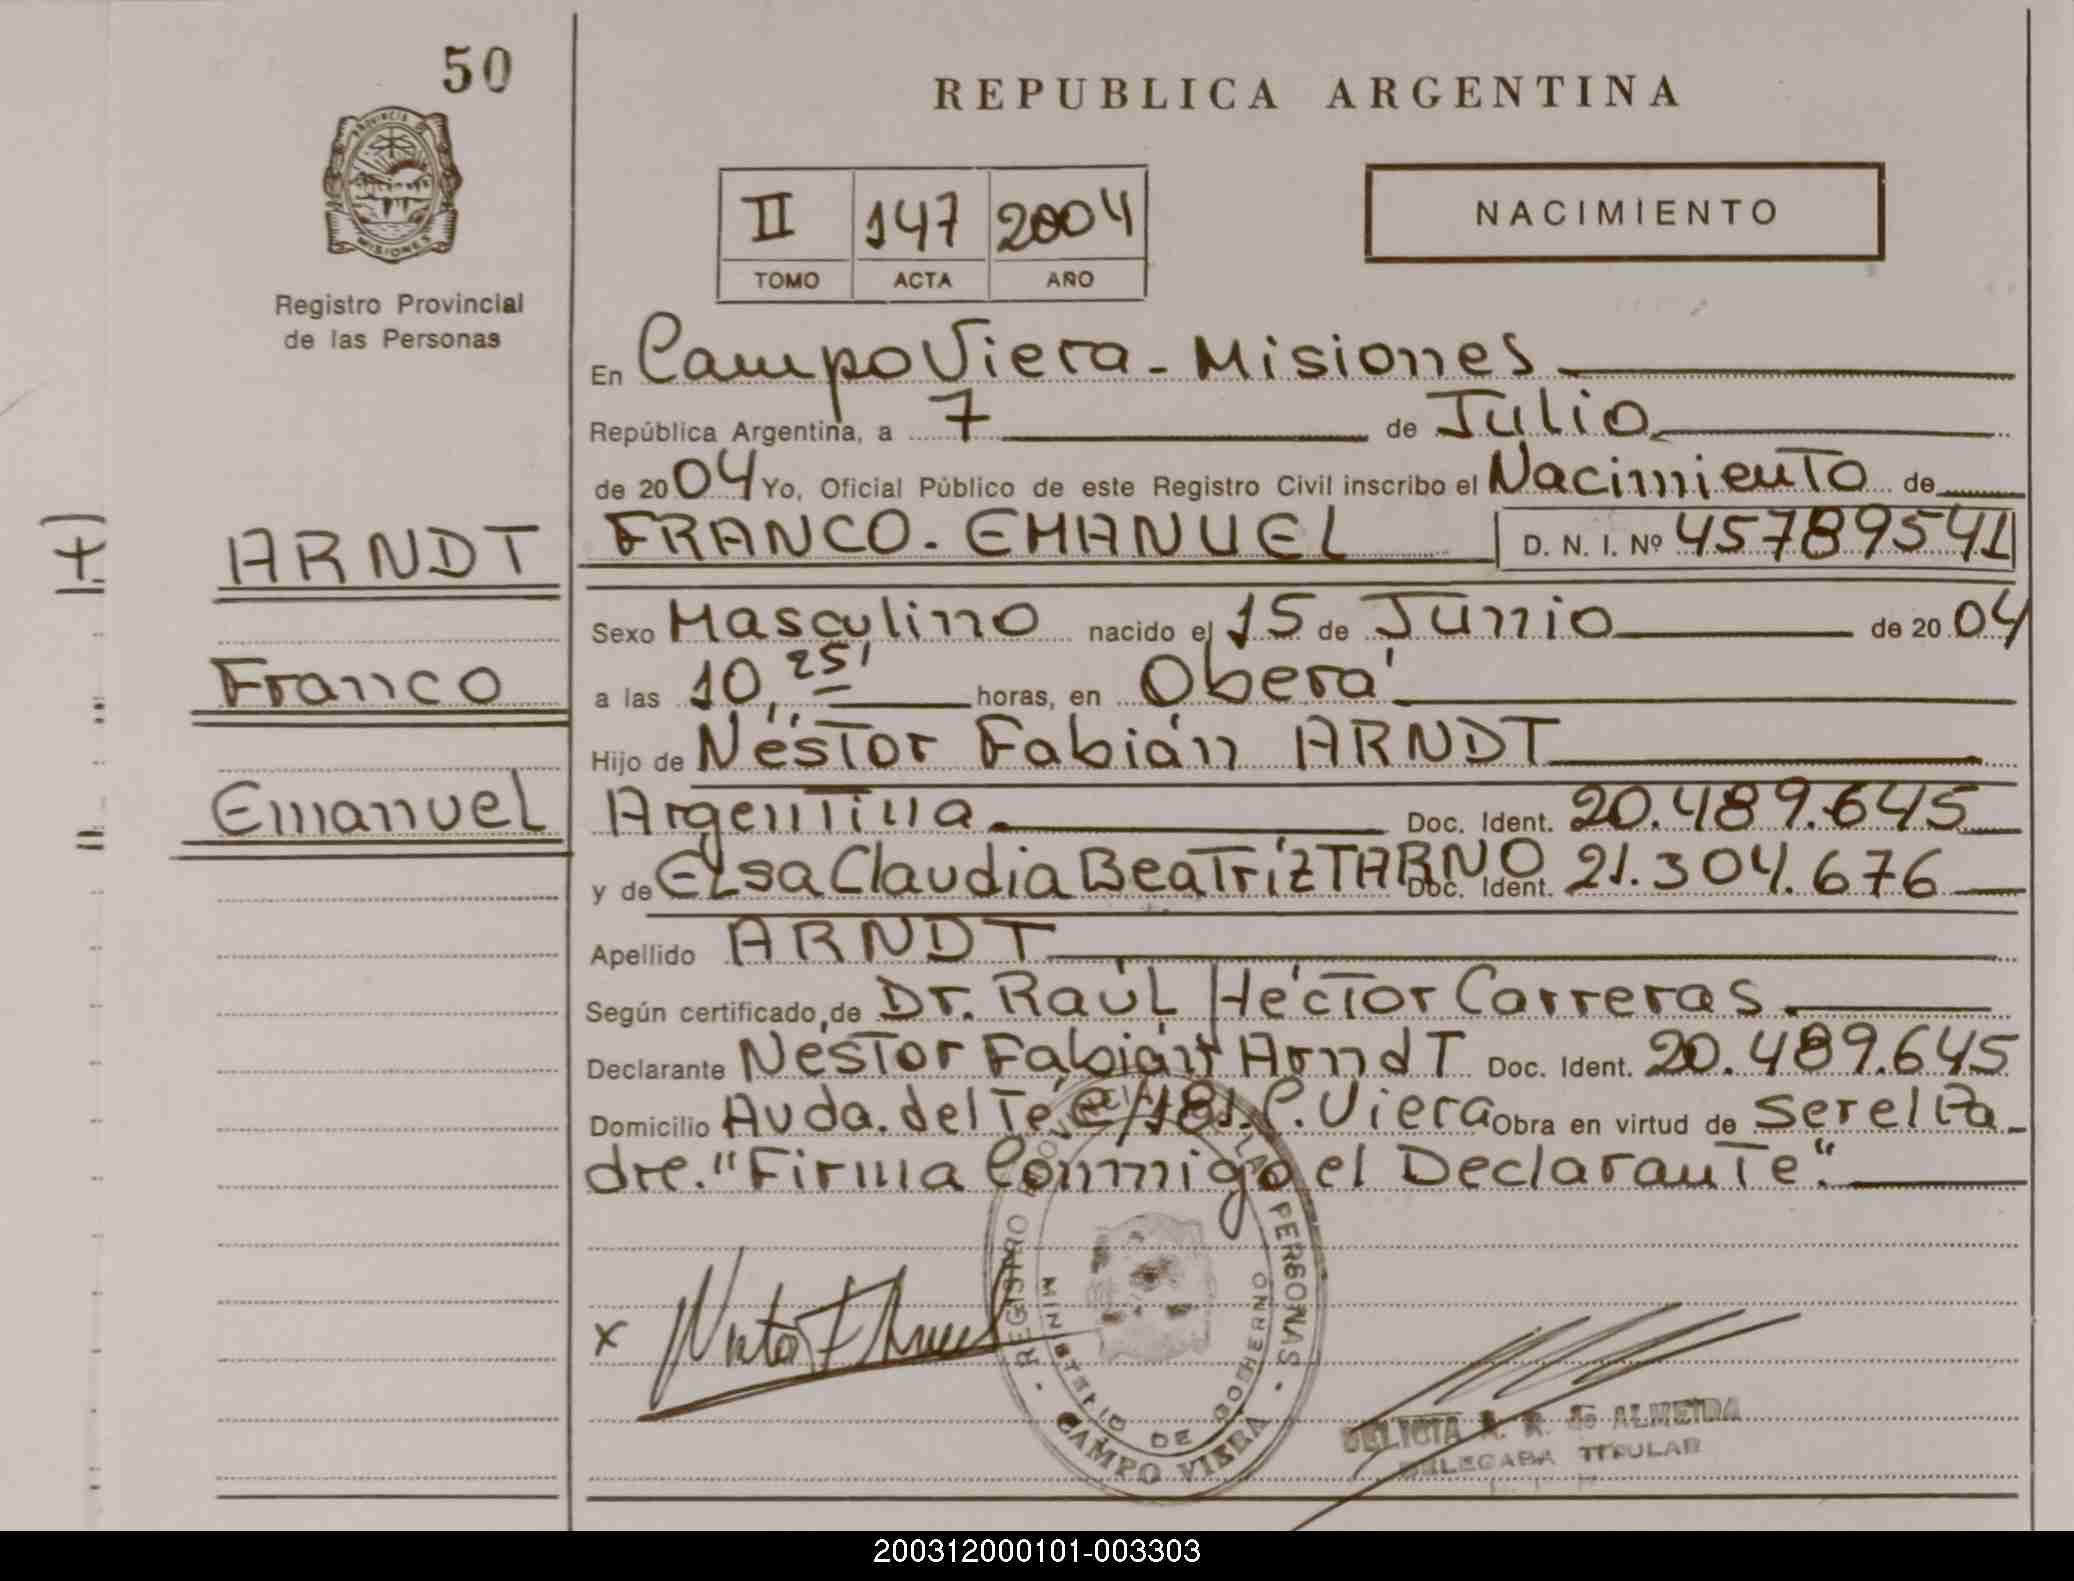 50
PROVINCIA DE
MISIONES
Registro Provincial
de las Personas
ARNDT
Franco
Emanuel
REPUBLICA ARGENTINA
II 147 2004
TOMO ACTA AÑO
NACIMIENTO
En Campo Viera - Misiones
República Argentina, a 7 de Julio
de 2004 Yo, Oficial Público de este Registro Civil inscribo el Nacimiento de
FRANCO - EMANUEL D. N. I. Nº 45789541
Sexo Masculino nacido el 15 de Junio de 2004
a las 10,25' horas, en Oberá
Hijo de Néstor Fabián ARNDT
Argentina Doc. Ident. 20.489.645
y de ELsa Claudia Beatríz TARNO Doc. Ident. 21.304.676
Apellido ARNDT
Según certificado de Dr. Raúl Héctor Carreras
Declarante Nestor Fabián Arndt Doc. Ident. 20.489.645
Domicilio Avda. del Té C/181. C. Viera Obra en virtud de Ser el Pa-
dre. "Firma Conmigo el Declarante".
x
REGISTRO PROVINCIAL DE LAS PERSONAS
MINISTERIO DE GOBIERNO
CAMPO VIERA
DELICIA R. R. de ALMEIDA
DELEGADA TITULAR
200312000101-003303